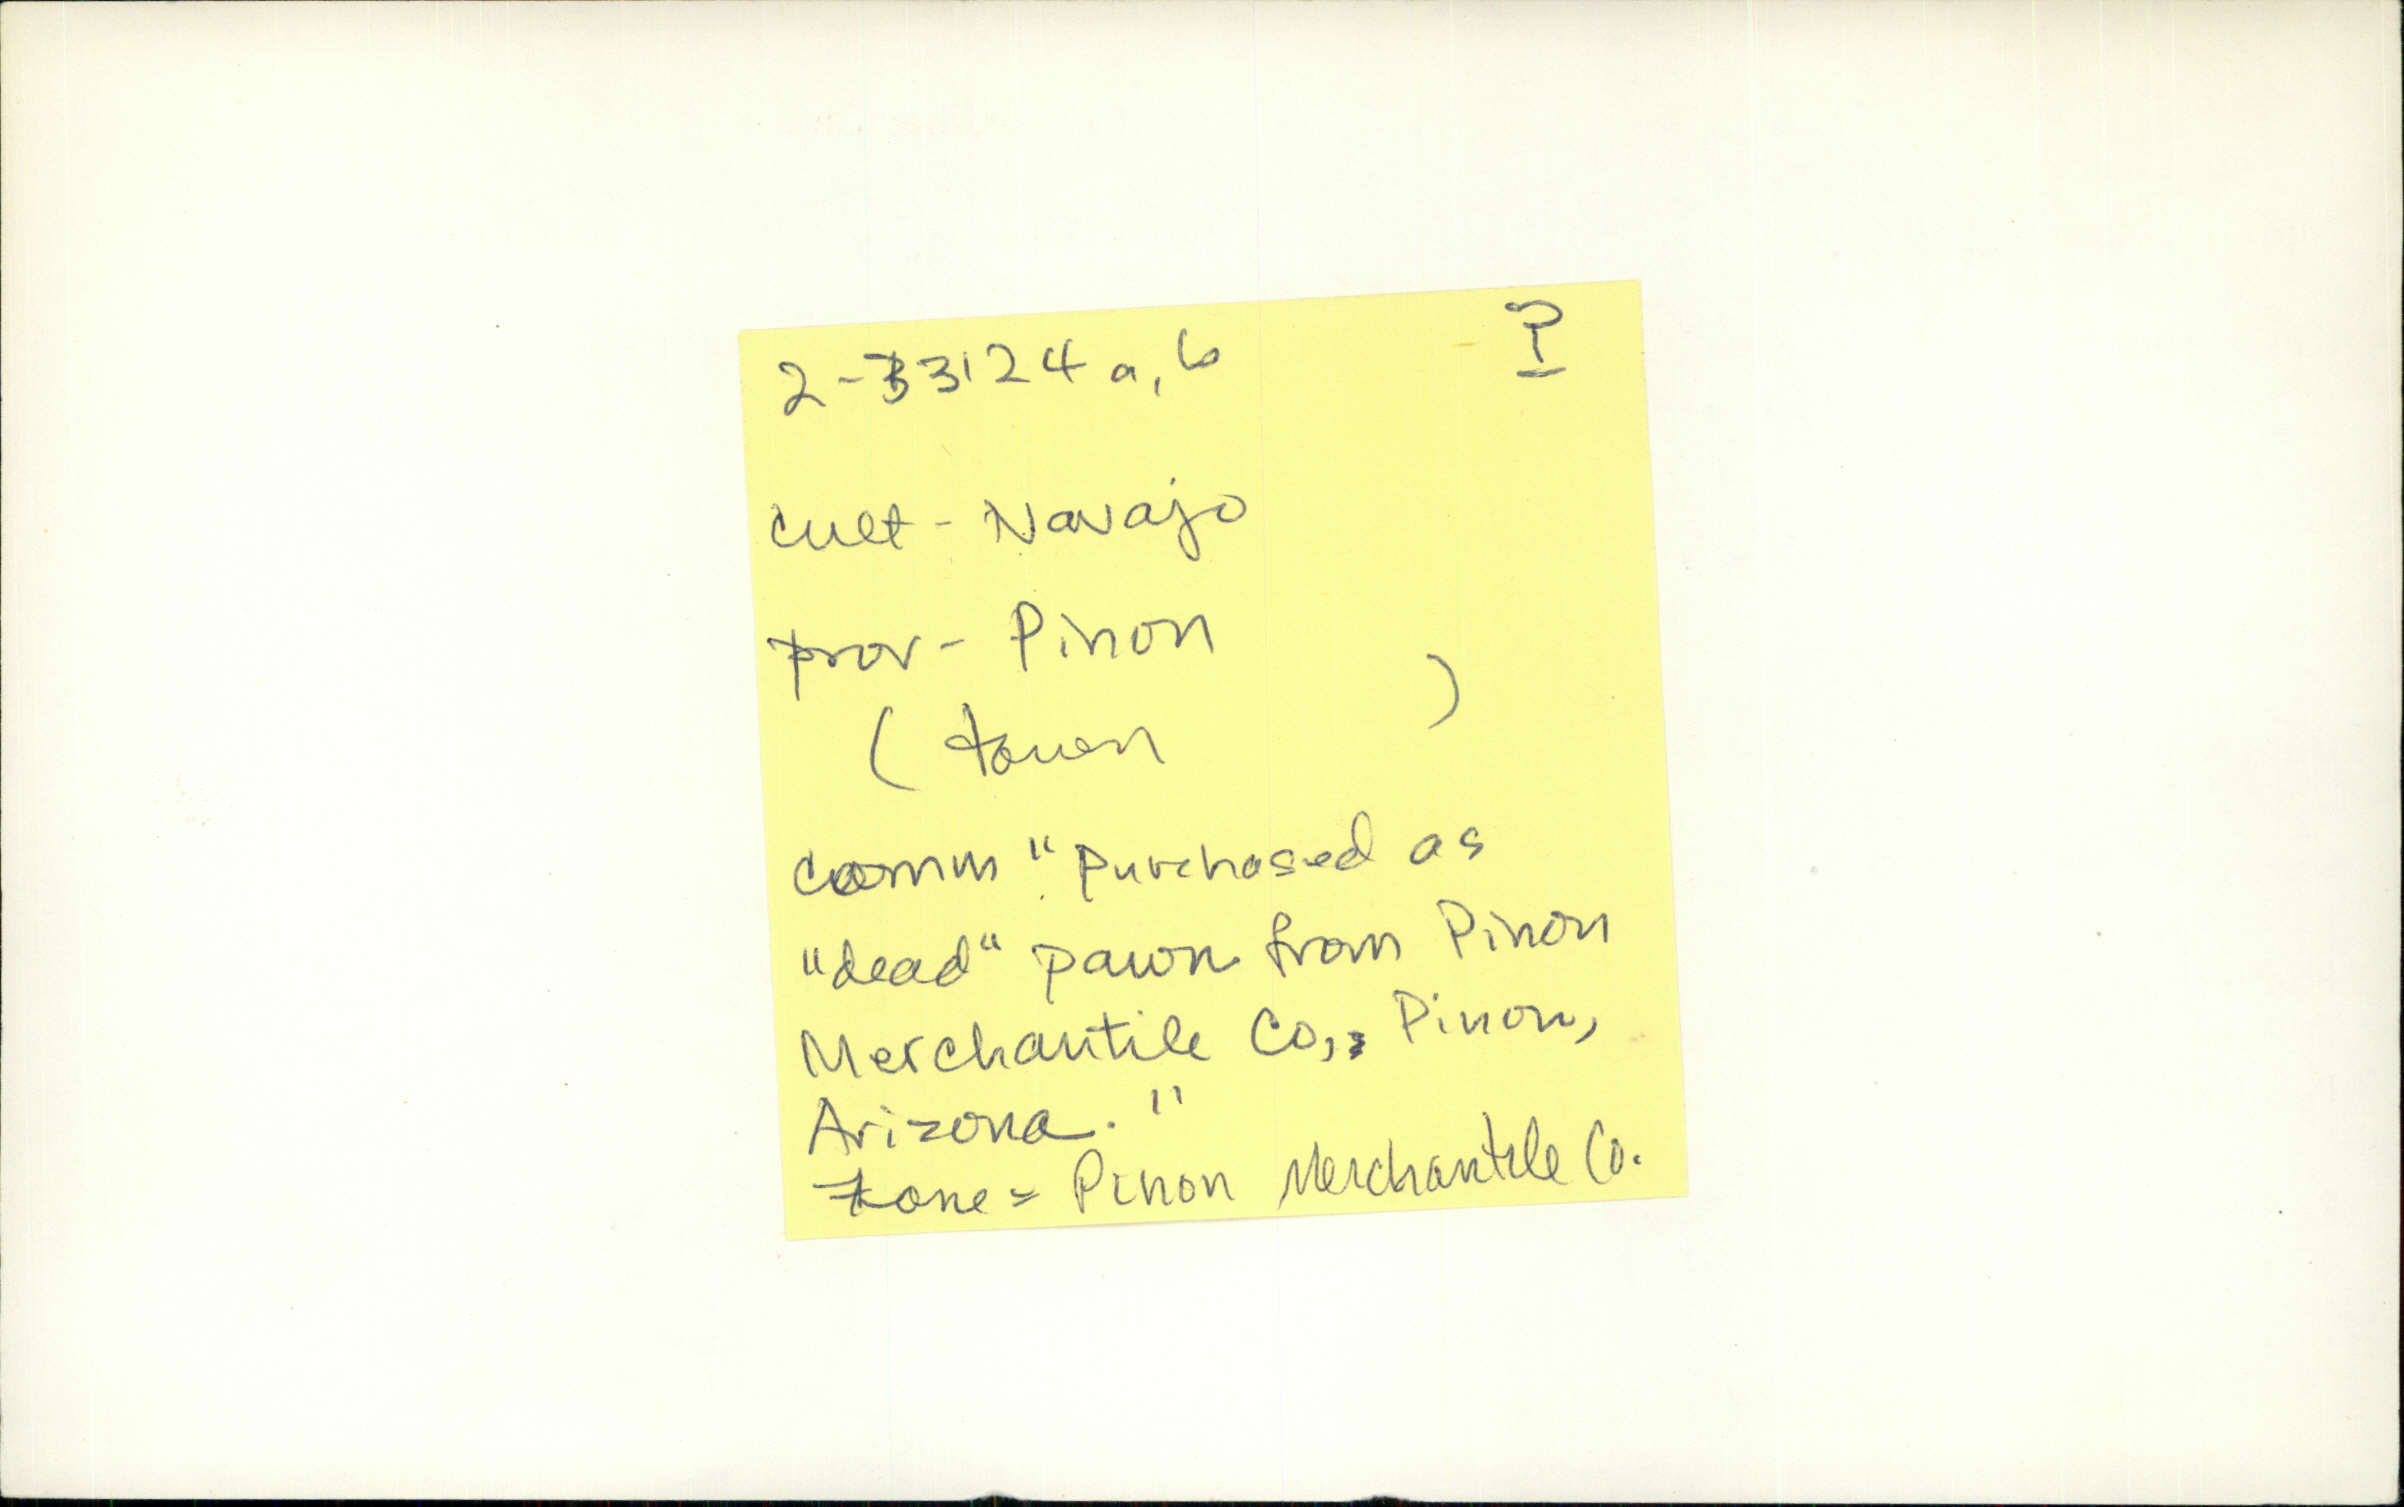 2-33124 a, b ?
cult - Navajo
prov - Pinon
( town )
comm "purchased as
"dead" pawn from Pinon
Merchantile Co., Pinon,
Arizona."
= Pinon Merchantile Co.